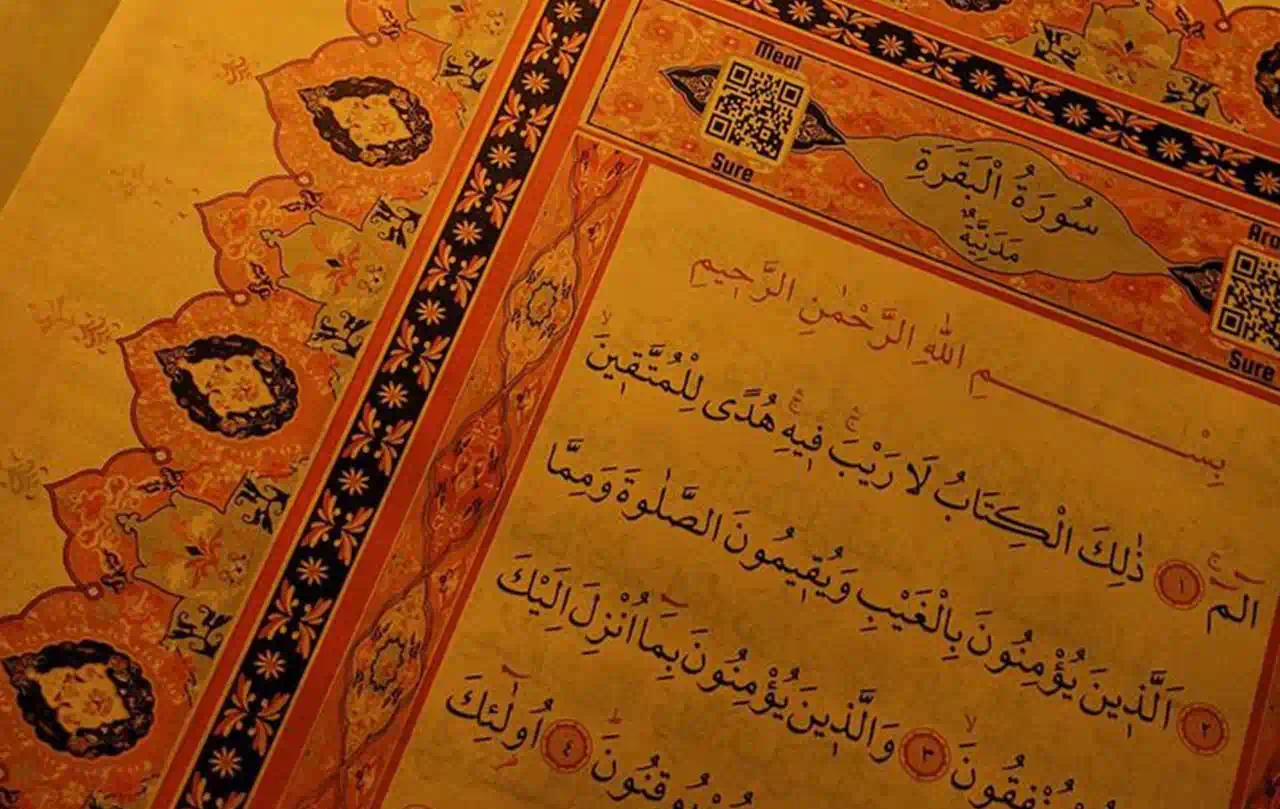 Meal
Sure
سُورَةُ الْبَقَرَةِ
مَدَنِيَّةٌ
Sure
بِسْمِ اللّٰهِ الرَّحْمٰنِ الرَّحِيمِ
الٓمٓ ۚ ﴿١﴾ ذٰلِكَ الْكِتَابُ لَا رَيْبَ ۚ فِيهِ ۚ هُدًى لِلْمُتَّقِينَ ۙ
﴿٢﴾ اَلَّذِينَ يُؤْمِنُونَ بِالْغَيْبِ وَيُقِيمُونَ الصَّلٰوةَ وَمِمَّا
يُنْفِقُونَ ۙ ﴿٣﴾ وَالَّذِينَ يُؤْمِنُونَ بِمَٓا اُنْزِلَ اِلَيْكَ
يُوقِنُونَ ۜ ﴿٤﴾ اُولٰٓئِكَ